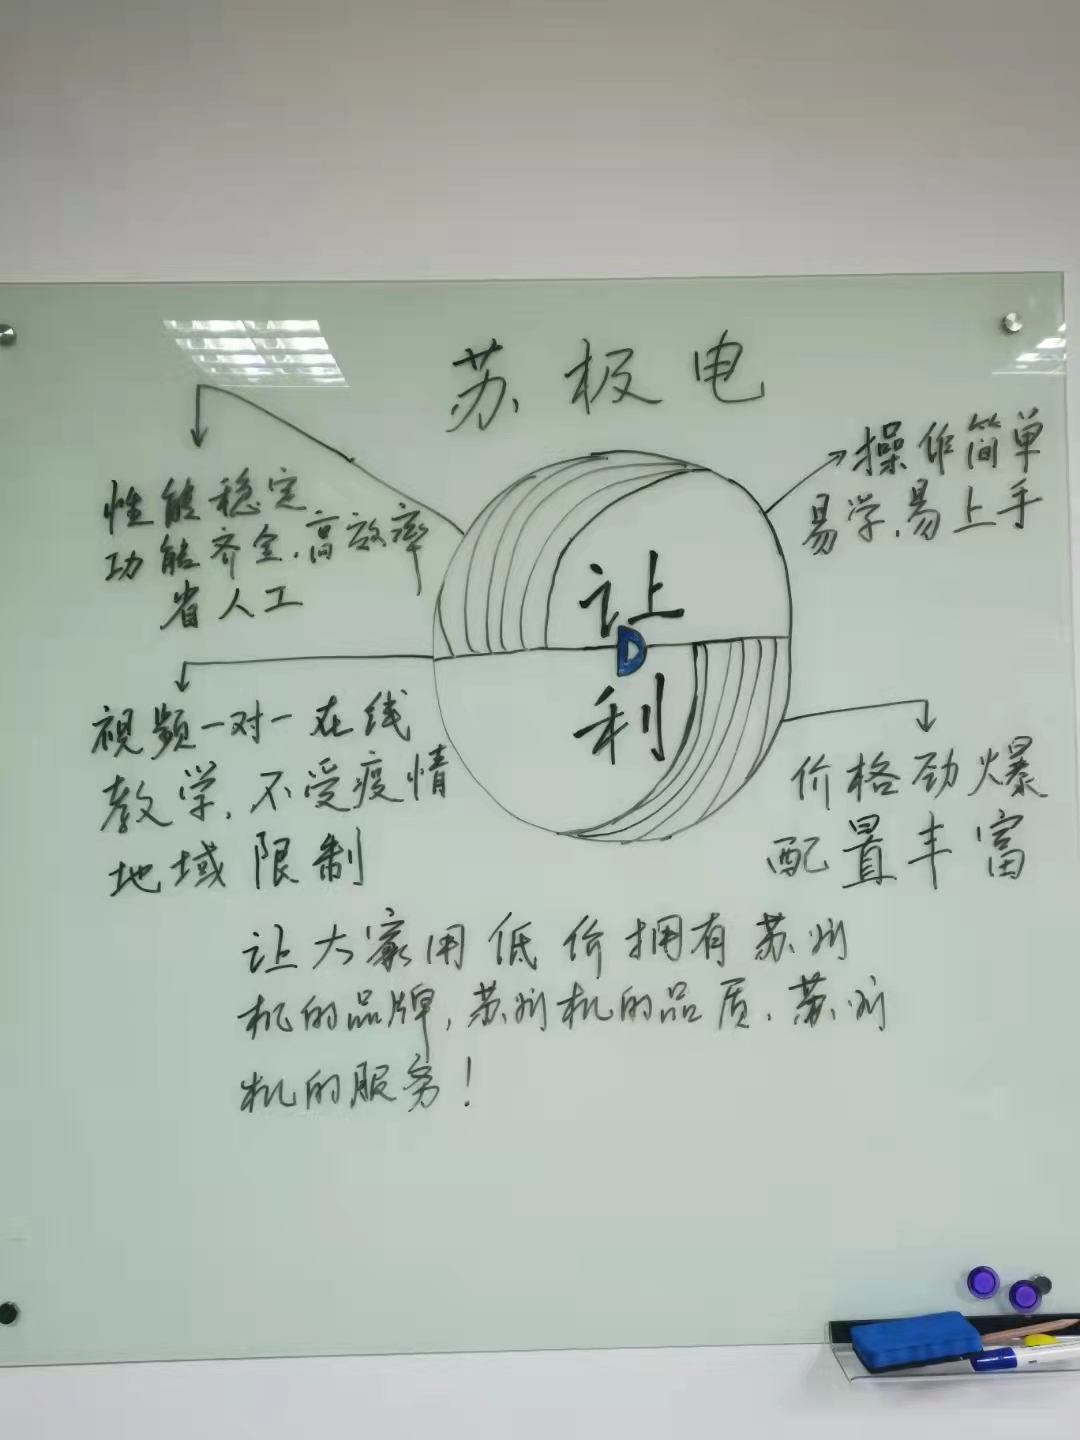 苏极电
操作简单
易学,易上手
性能稳定
功能齐全,高效率
省人工
让
D
利
视频一对一在线
教学,不受疫情
地域限制
价格劲爆
配置丰富
让大家用低价拥有苏州
机的品牌,苏州机的品质、苏州
机的服务!